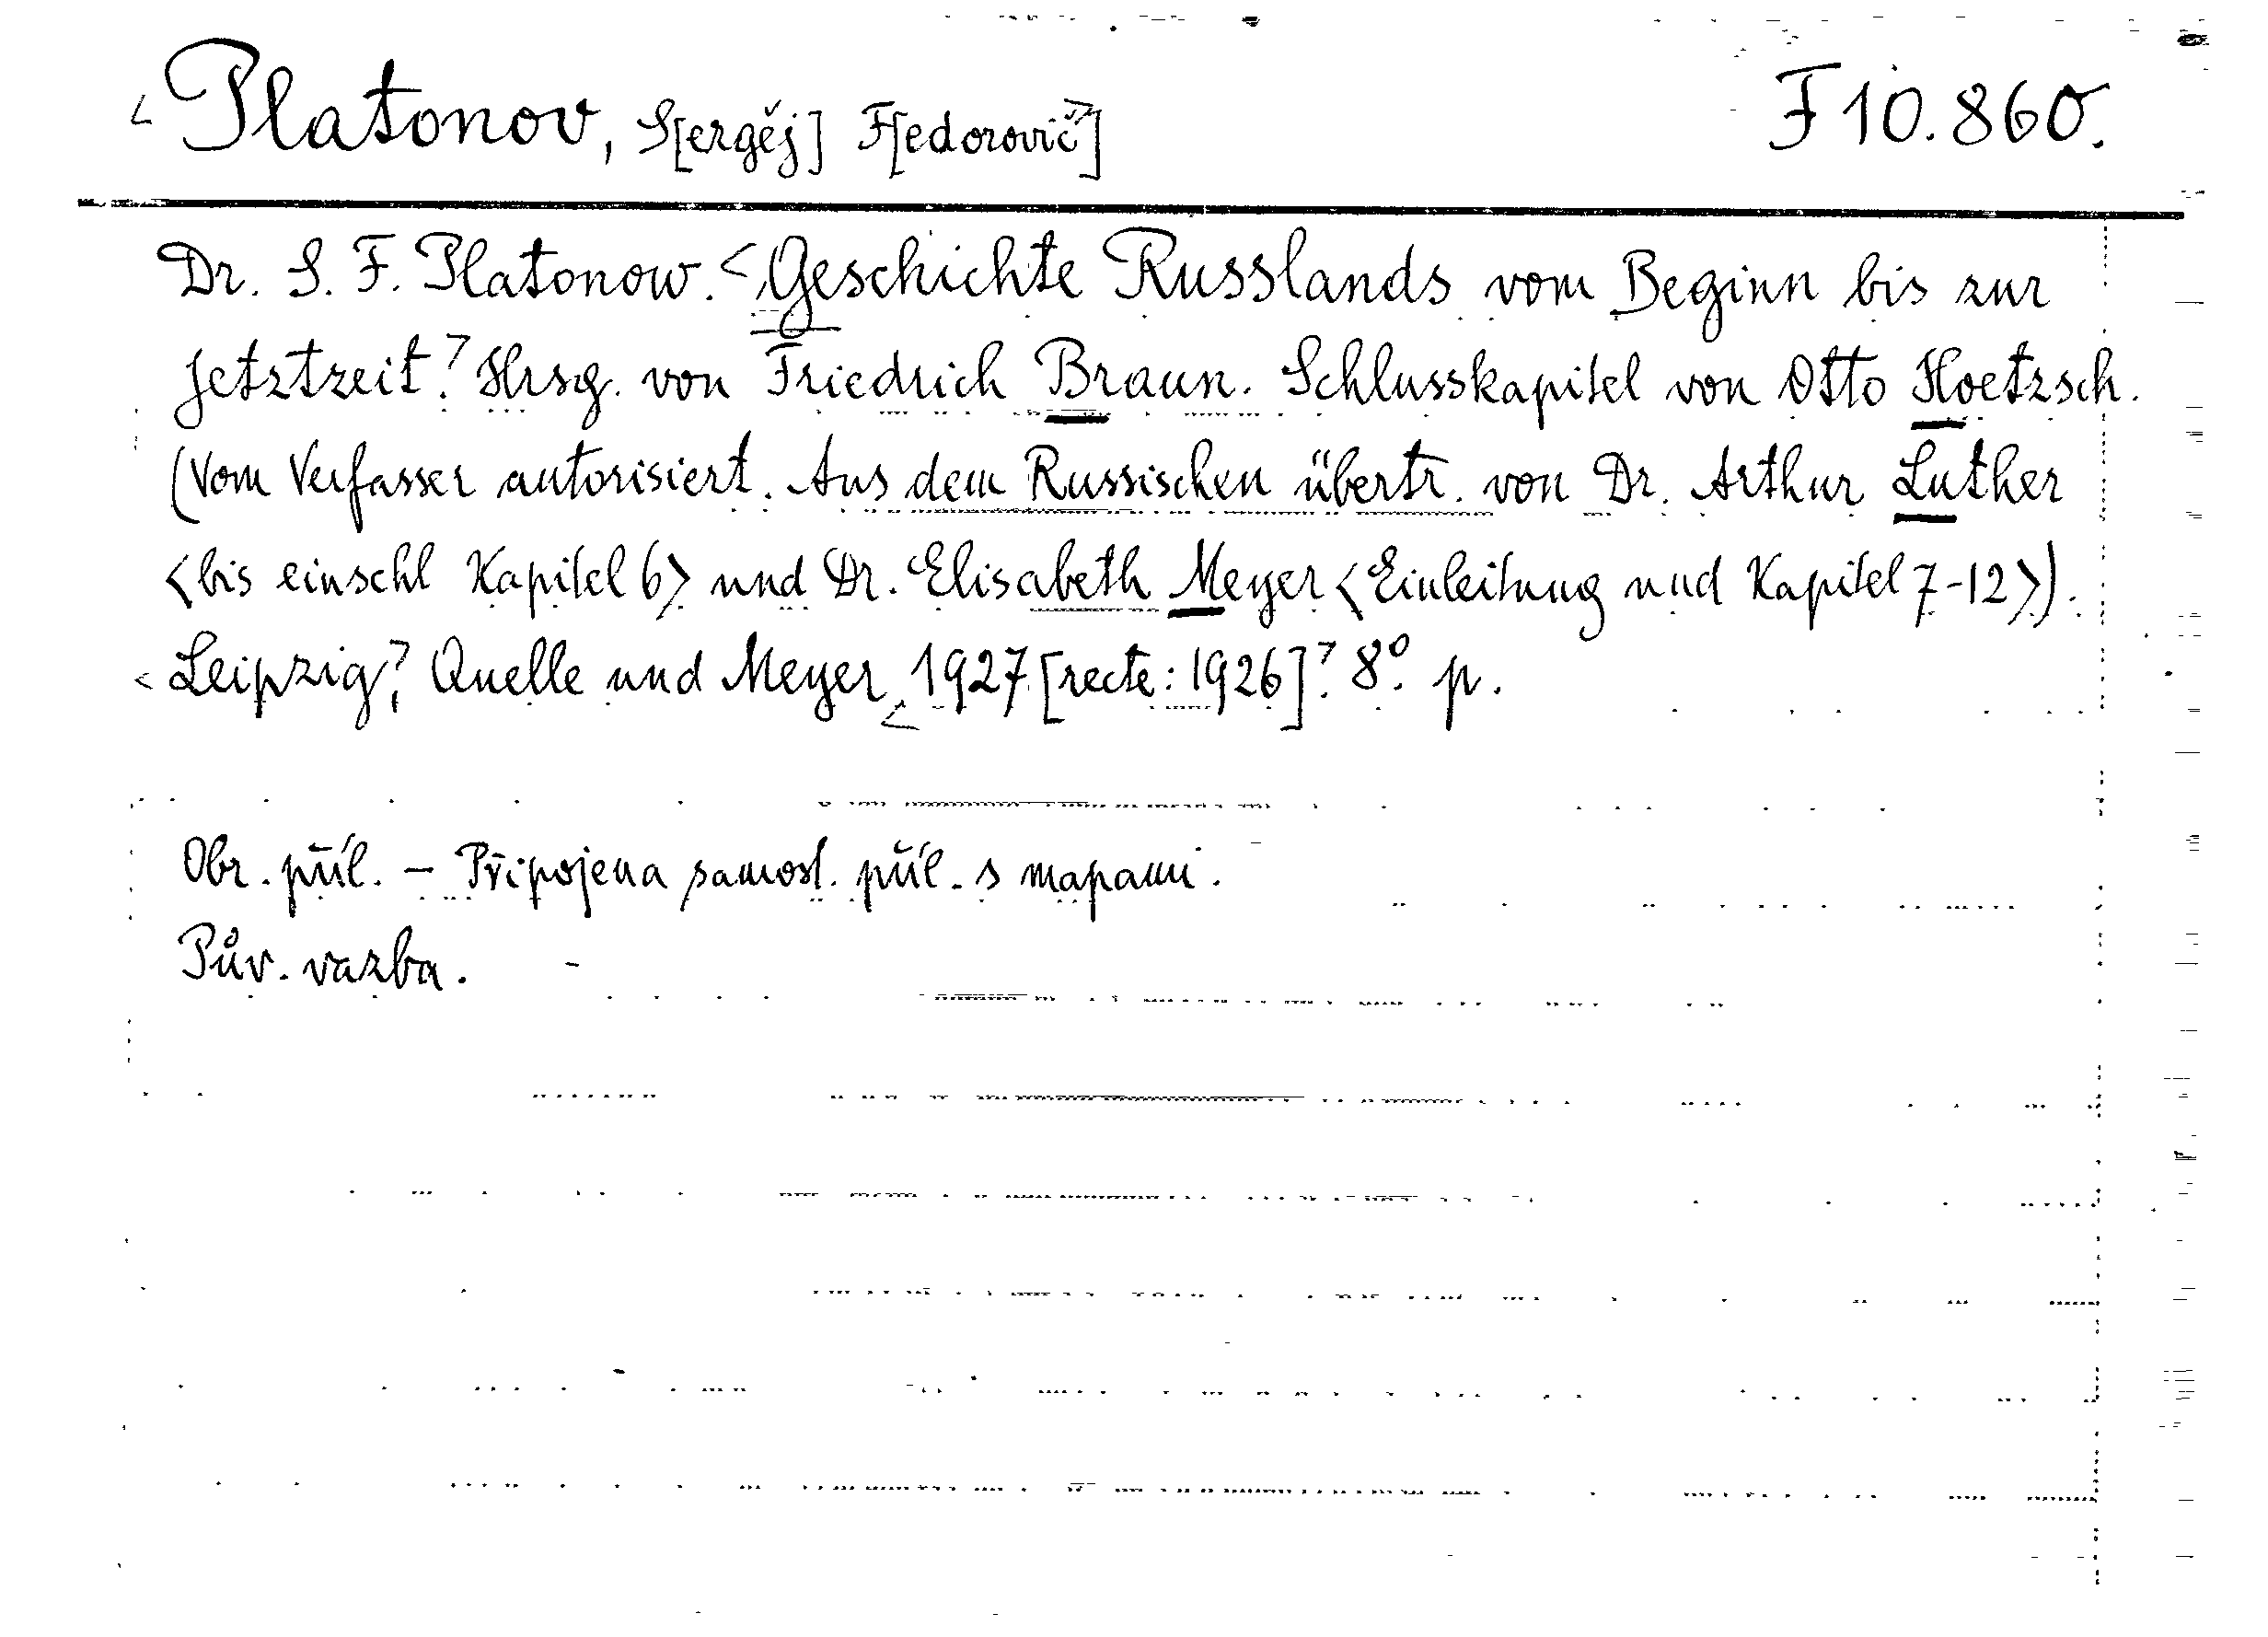 Platonov, S[ergěj] F[edorovič] F 10.860.
Dr. S. F. Platonow. Geschichte Russlands vom Beginn bis zur
Jetztzeit. Hrsg. von Friedrich Braun. Schlusskapitel von Otto Hoetzsch.
(Vom Verfasser autorisiert. Aus dem Russischen übertr. von Dr. Arthur Luther
<bis einschl Kapitel 6> und Dr. Elisabeth Meyer <Einleitung und Kapitel 7-12>).
Leipzig, Quelle und Meyer 1927 [recte: 1926]. 8°. p.
Obr. příl. – Připojena samost. příl. s mapami.
Pův. vazba.